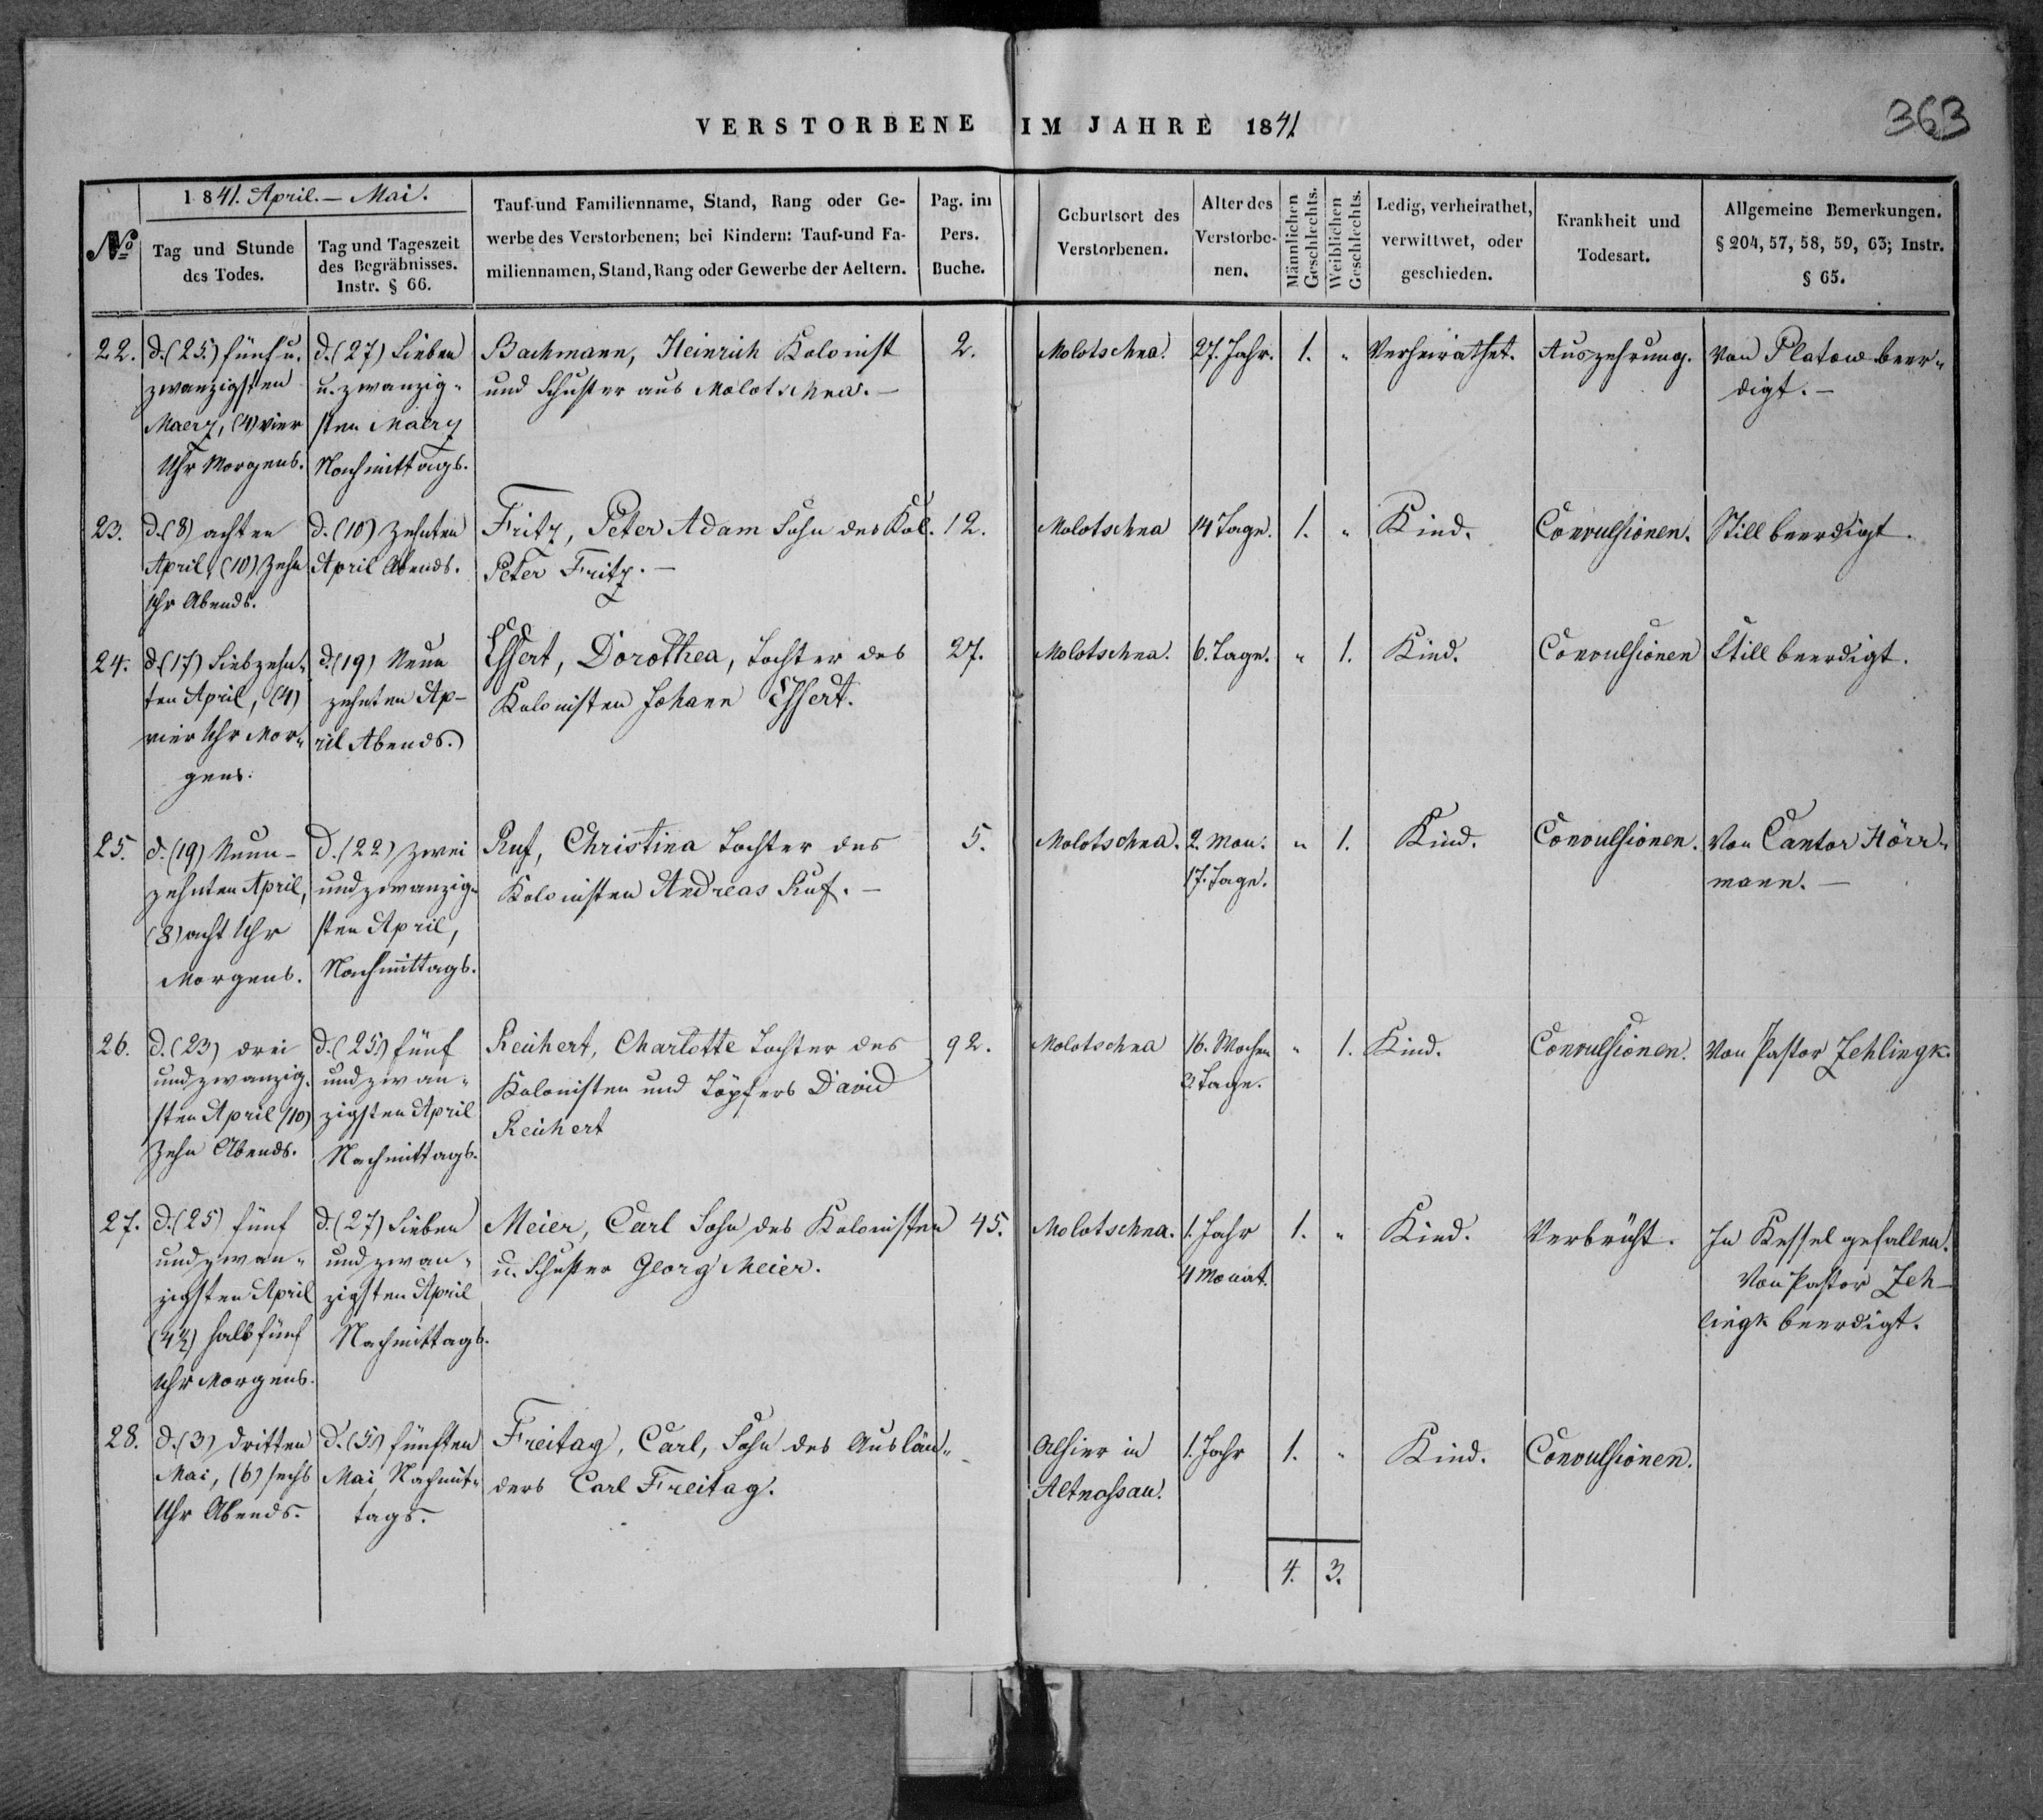 VERSTORBENE IM JAHRE 1841.
363
1841. April. — Mai.
№
Tag und Stunde
des Todes.
Tag und Tageszeit
des Begräbnisses.
Instr. § 66.
Tauf-und Familienname, Stand, Rang oder Ge-
werbe des Verstorbenen; bei Kindern: Tauf-und Fa-
miliennamen, Stand, Rang oder Gewerbe der Aeltern.
Pag. im
Pers.
Buche.
Geburtsort des
Verstorbenen.
Alter des
Verstorbe-
nen.
Männlichen
Geschlechts.
Weiblichen
Geschlechts.
Ledig, verheirathet,
verwittwet, oder
geschieden.
Krankheit und
Todesart.
Allgemeine Bemerkungen.
§ 204, 57, 58, 59, 63; Instr.
§ 65.
22.
d. (25.) fünf u.
zwanzigsten
Maerz, (4) vier
Uhr Morgens.
d. (27) Sieben
u. zwanzig-
sten Maerz
Nachmittags.
Bachmann, Heinrich Kolonist
und Schuster aus Molotschna. —
2.
Molotschna.
27. Jahr.
1.
"
Verheirathet.
Auszehrung.
Von Platow beer-
digt. —
23.
d. (8) achten
April, (10) Zehn
Uhr Abends.
d. (10) Zehnten
April Abends.
Fritz, Peter Adam Sohn des Kol.
Peter Fritz. —
12.
Molotschna
14 Tage.
1.
"
Kind.
Convulsionen.
Still beerdigt.
24.
d. (17) Siebzehn-
ten April, (4)
vier Uhr Mor-
gens.
d. (19) Neun
zehnten Ap-
ril Abends.
Essert, Dorothea, Tochter des
Kolonisten Johann Essert.
27.
Molotschna.
6. Tage.
"
1.
Kind.
Convulsionen
Still beerdigt.
25.
d. (19) Neun-
zehnten April,
(8) acht Uhr
Morgens.
d. (22) zwei
und zwanzig-
sten April,
Nachmittags.
Ruf, Christina Tochter des
Kolonisten Andreas Ruf. —
5.
Molotschna.
2. Mon.
17. Tage.
"
1.
Kind.
Convulsionen.
Von Cantor Hörr-
mann. —
26.
d. (23) drei
und zwanzig-
sten April (10)
Zehn Abends.
d. (25.) fünf
und zwan-
zigsten April
Nachmittags.
Reichert, Charlotte Tochter des
Kolonisten und Töpfers David
Reichert
92.
Molotschna
16. Wochen
Tage.
"
1.
Kind.
Convulsionen.
Von Pastor Zehlingk.
27.
d. (25) fünf
und zwan-
zigsten April
(4½) halb fünf
Uhr Morgens.
d. (27) Sieben
und zwan-
zigsten April
Nachmittags.
Meier, Carl Sohn des Kolonisten
u. Schuster Georg Meier.
45.
Molotschna.
1. Jahr
4 Monat.
1.
"
Kind.
Verbrüht.
In Kessel gefallen.
Von Pastor Zeh-
lingk beerdigt.
28.
d. (3) dritten
Mai, (6) sechs
Uhr Abends.
d. (5.) fünften
Mai, Nachmit-
tags.
Freitag, Carl, Sohn des Auslän-
ders Carl Freitag.
Alhier in
Altnassau.
1. Jahr
1.
"
Kind.
Convulsionen.
4.
3.